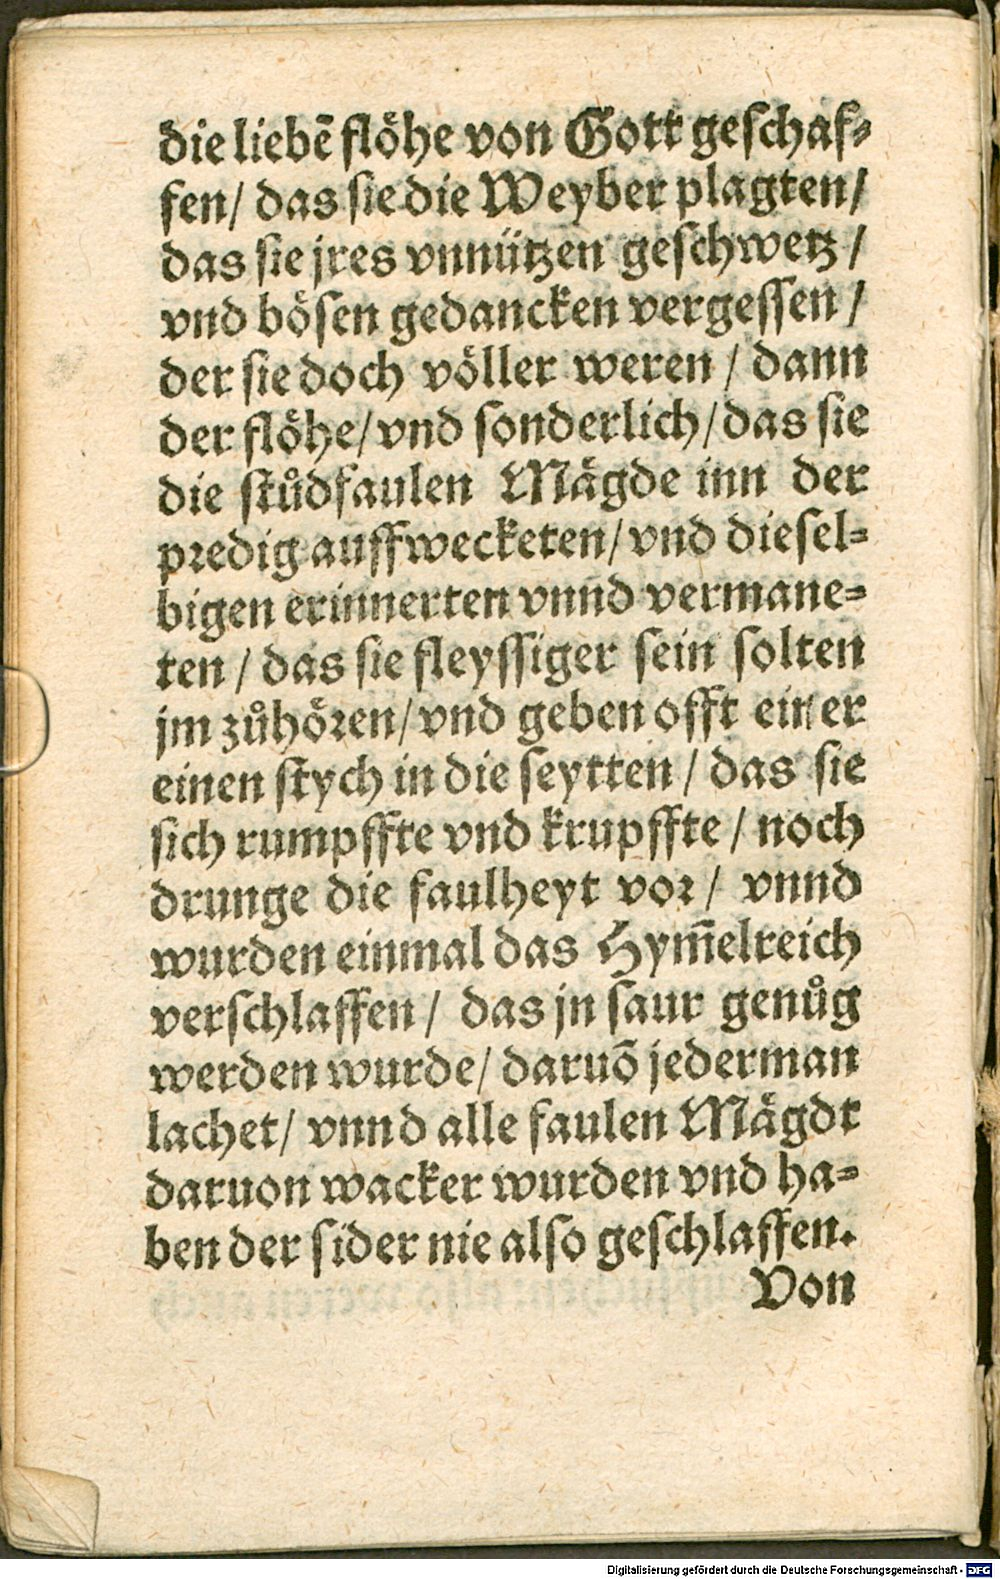 die liebẽ flöhe von Gott geschaf⸗
fen/ das sie die Weyber plagten/
das sie jres vnnützen geschwetz /
vnd bösen gedancken vergessen /
der sie doch völler weren / dann
der flöhe/ vnd sonderlich/ das sie
die stůdfaulen Mägde inn der
predig auffwecketen/ vnd diesel⸗
bigen erinnerten vnnd vermane⸗
ten / das sie fleyssiger sein solten
jm zůhören/ vnd geben offt einer
einen stych in die seytten / das sie
sich rumpffte vnd krupffte / noch
drunge die faulheyt vor / vnnd
wurden einmal das Hym̃elreich
verschlaffen / das jn saur genůg
werden wurde/ daruõ jederman
lachet/ vnnd alle faulen Mägdt
daruon wacker wurden vnd ha⸗
ben der sider nie also geschlaffen.
Von
Digitalisierung gefördert durch die Deutsche Forschungsgemeinschaft - DFG